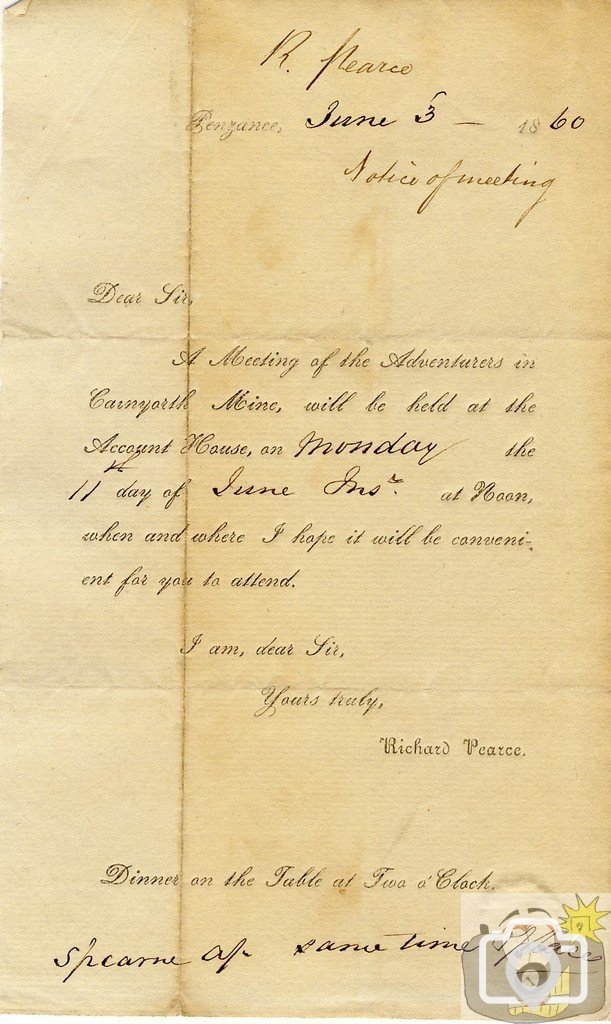 R. Pearce
Penzance, June 5 — 1860
Notice of meeting
Dear Sir,
A Meeting of the Adventurers in
Carnyorth Mine, will be held at the
Account House, on Monday the
11th day of June Inst. at Noon,
when and where I hope it will be conveni-
ent for you to attend.
I am, dear Sir,
Yours truly,
Richard Pearce.
Dinner on the Table at Two o'Clock.
Spearne same time